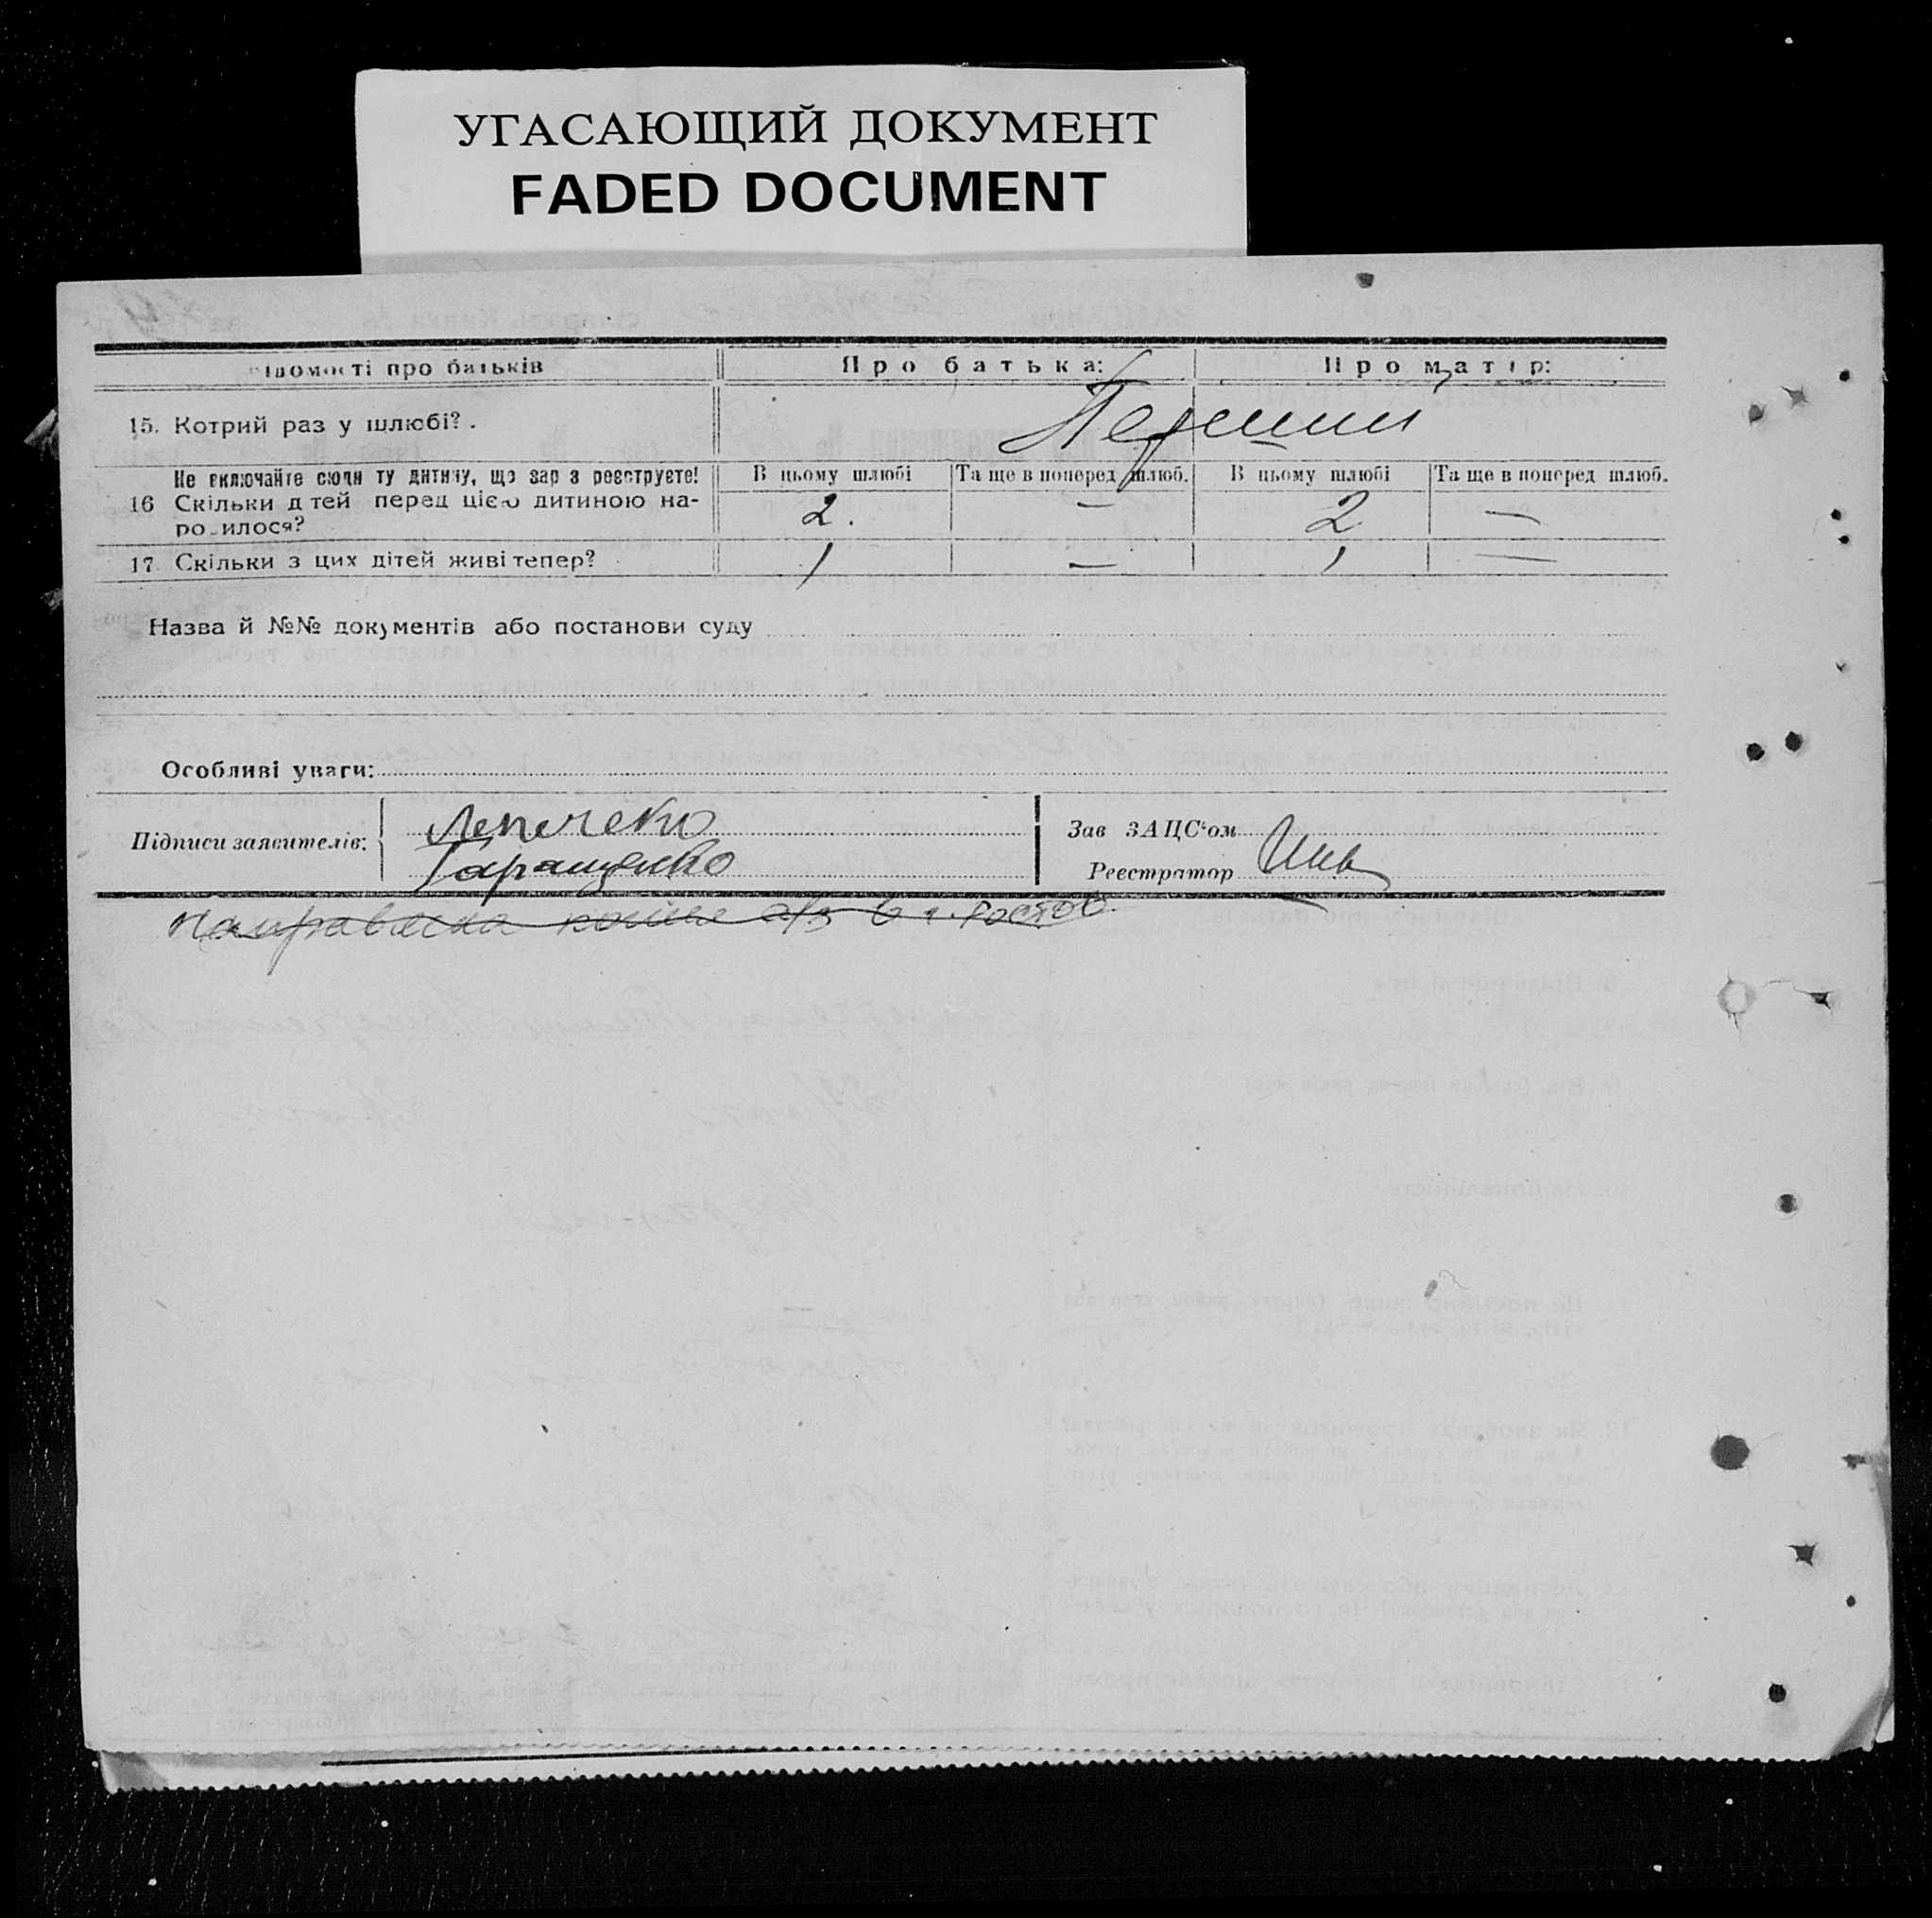 УГАСАЮЩИЙ ДОКУМЕНТ
FADED DOCUMENT
ідомості про батьків Про батька: Про матір:
15. Котрий раз у шлюбі?. Перший
Не включайте сюди ту дитину, що зараз реєструєте! В цьому шлюбі Та ще в поперед шлюб. В цьому шлюбі Та ще в поперед шлюб.
16 Скільки дітей перед цією дитиною на- 2. — 2 —
родилося?
17. Скільки з цих дітей живі тепер? 1 — 1 —
Назва й №№ документів або постанови суду
Особливі уваги:
Підписи заявителів: Зав ЗАЦС'ом
Гаращенко Реєстратор
Направлена копия а/з в г. Ростов.